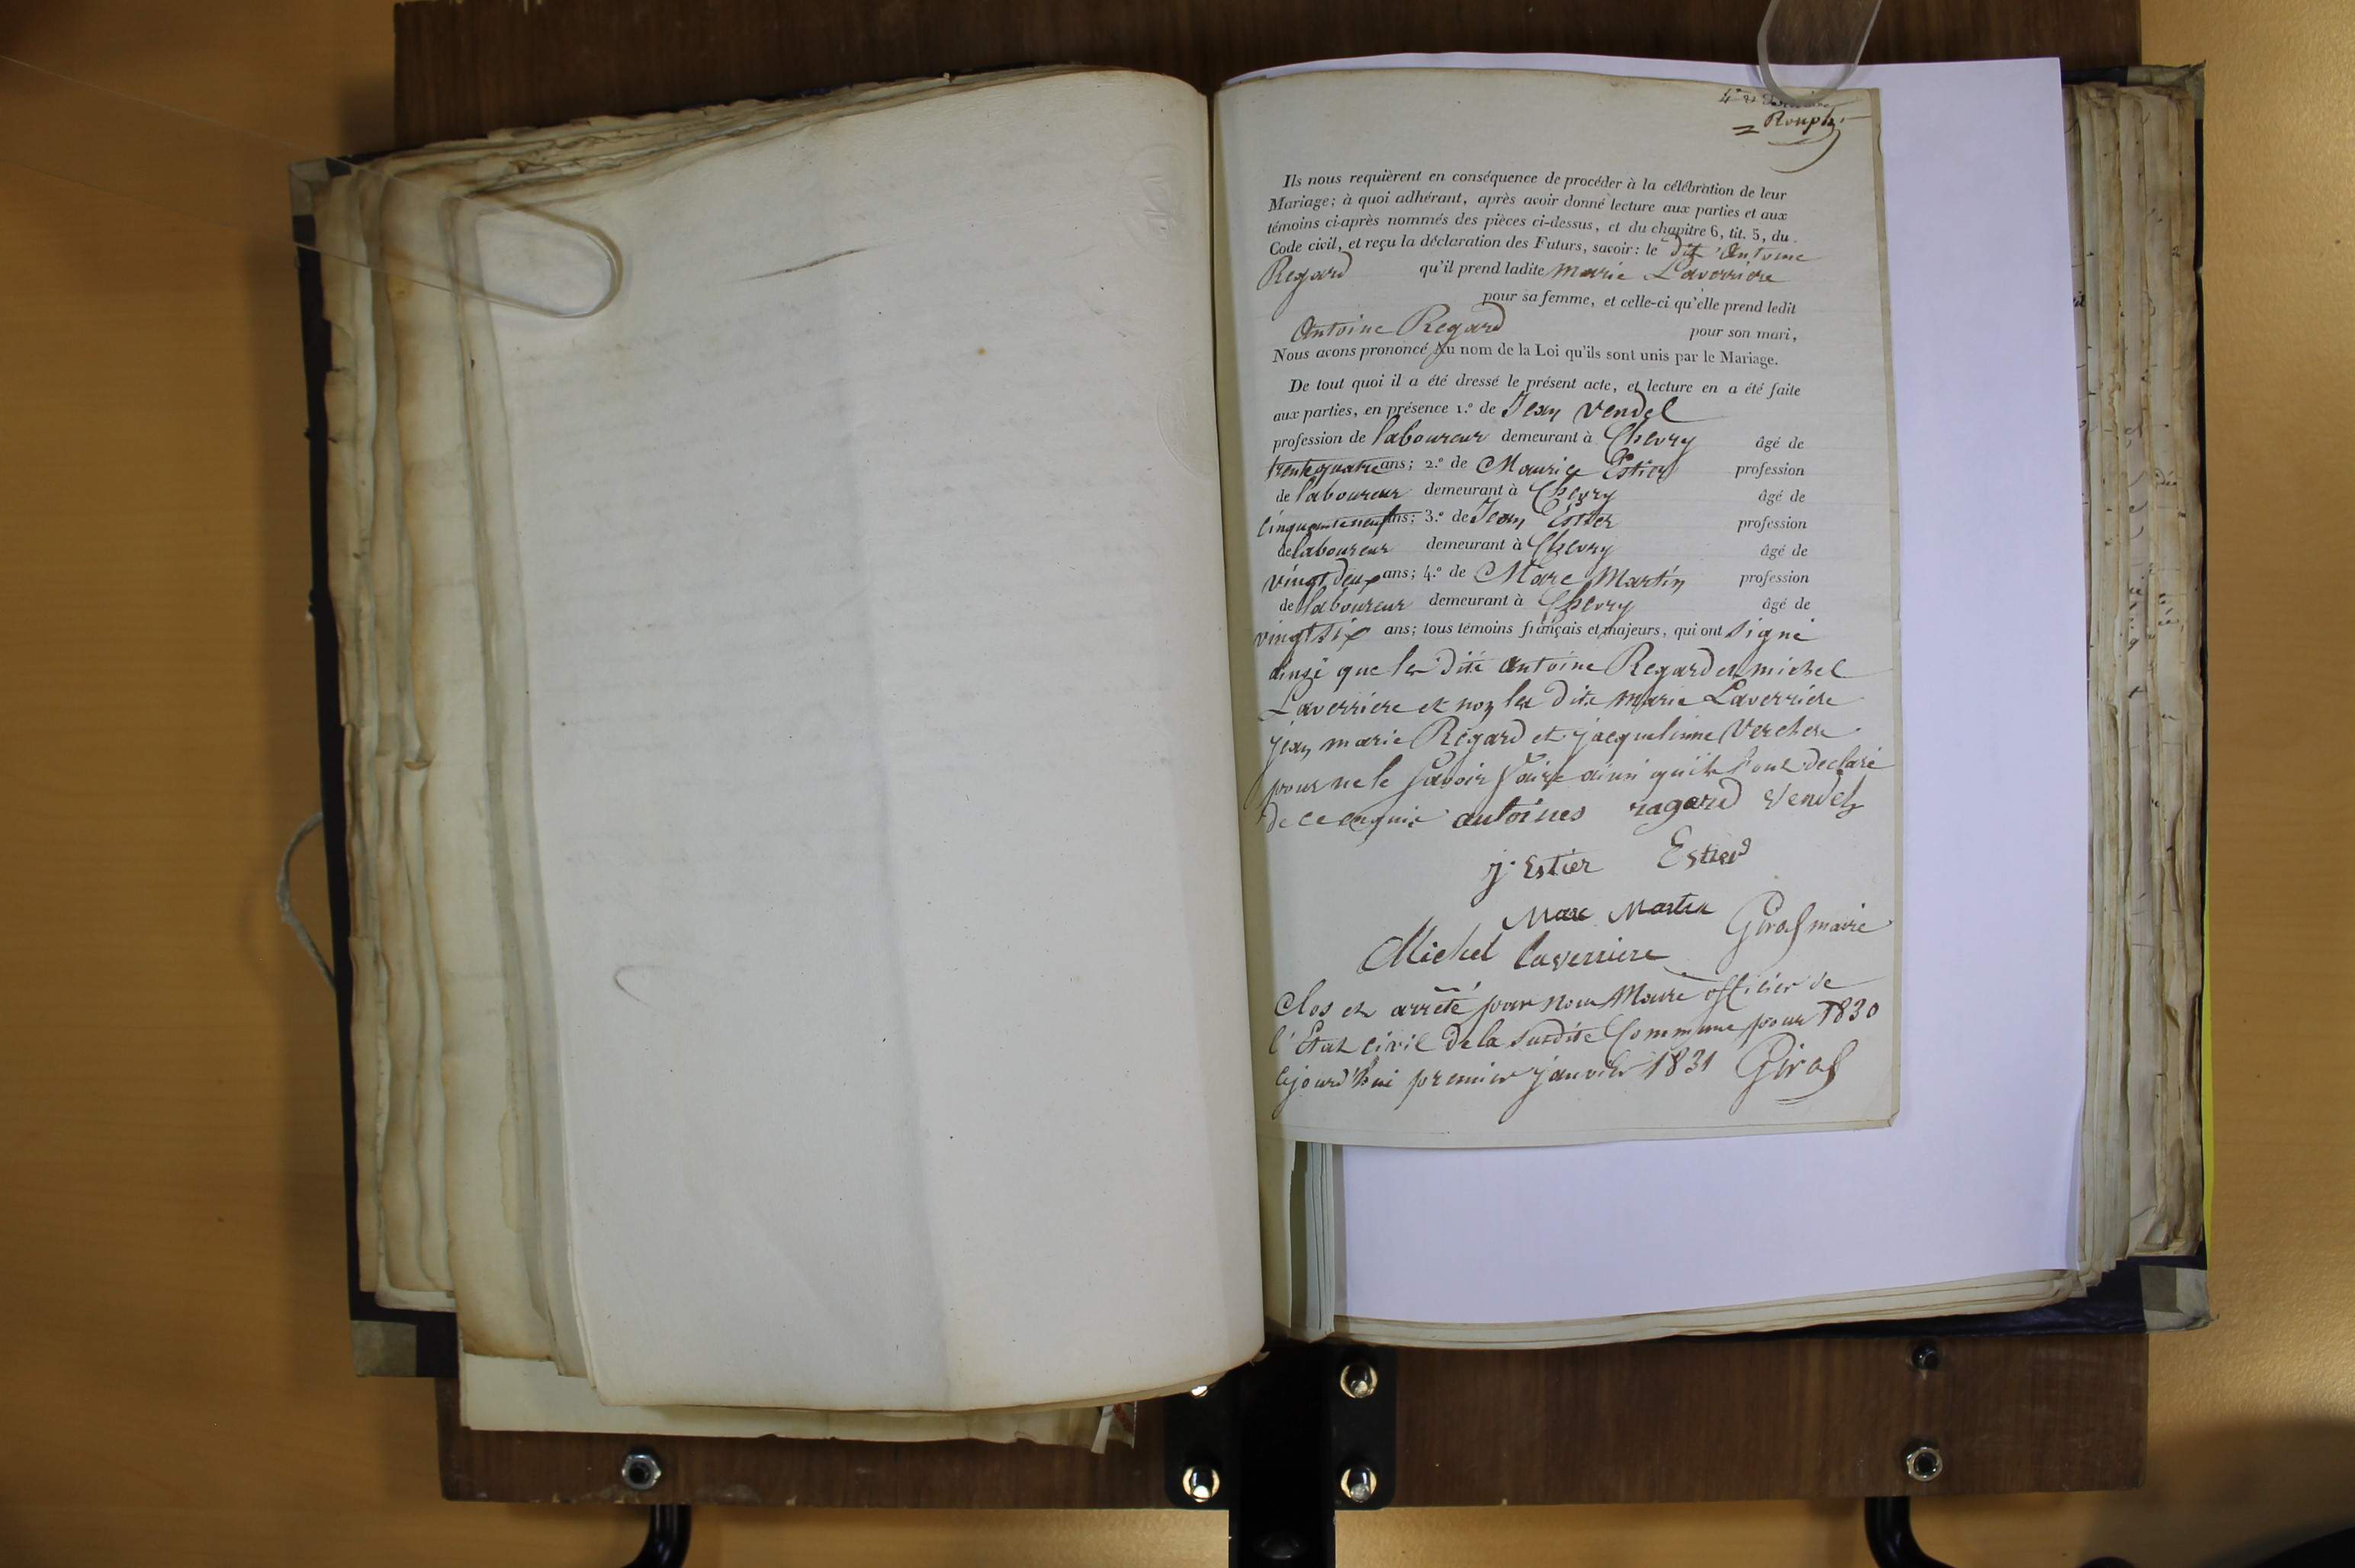 4e et
Rouph
Ils nous requièrent en conséquence de procéder à la célébration de leur
Mariage; à quoi adhérant, après avoir donné lecture aux parties et aux
témoins ci-après nommés des pièces ci-dessus, et du chapitre 6, tit. 5, du
Code civil, et reçu la déclaration des Futurs, savoir: le dit Antoine
Regard qu'il prend ladite marie Laverriere
pour sa femme, et celle-ci qu'elle prend ledit
Antoine Regard pour son mari,
Nous avons prononcé Au nom de la Loi qu'ils sont unis par le Mariage.
De tout quoi il a été dressé le présent acte, et lecture en a été faite
aux parties, en présence 1.° de Jean Vendel
profession de laboureur demeurant à Chevry âgé de
trente quatre ans; 2.° de Maurice Estier profession
de laboureur demeurant à Chevry âgé de
cinquante neuf ans; 3.° de Jean Estier profession
de laboureur demeurant à Chevry âgé de
vingt deux ans; 4.° de Marc Martin profession
de laboureur demeurant à Chevry âgé de
vingt six ans; tous témoins français et majeurs, qui ont signé
ainsi que les dits Antoine Regard et michel
Laverriere et non les dits marie Laverriere
jean marie Regard et jacquelinne Vercher
pour ne le savoir faire ainsi qu'ils l'ont declaré
de ce enquis antoines ragard Vendel
j. Estier Estier
Marc Martin Giraf maire
Michel Laverriere
Clos et arrêté par nous Maire officier de
l'Etat civil de la susdite Commune pour 1830
cejourd'hui premier janvier 1831 Giraf